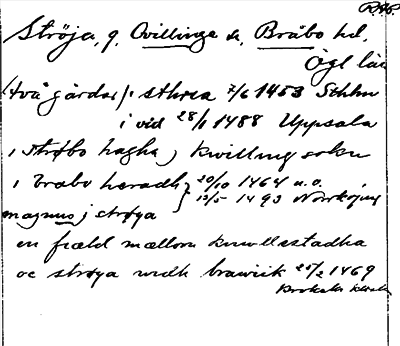 Ströja, g, Qvillinge sn, Bråbo hd,
Ögl län
(två gårdar) i sthrea 7/6 1453 Sthlm
i vid 28/1 1488 Uppsala
i strøbo hagha j kwilling sokn
i brabo hæradh 20/10 1464 u.o.
magnus j strøya 13/5 1493 Norrköping
en fiæld mællom knwllastadha
oc strøya widh brawiik 25/2 1469